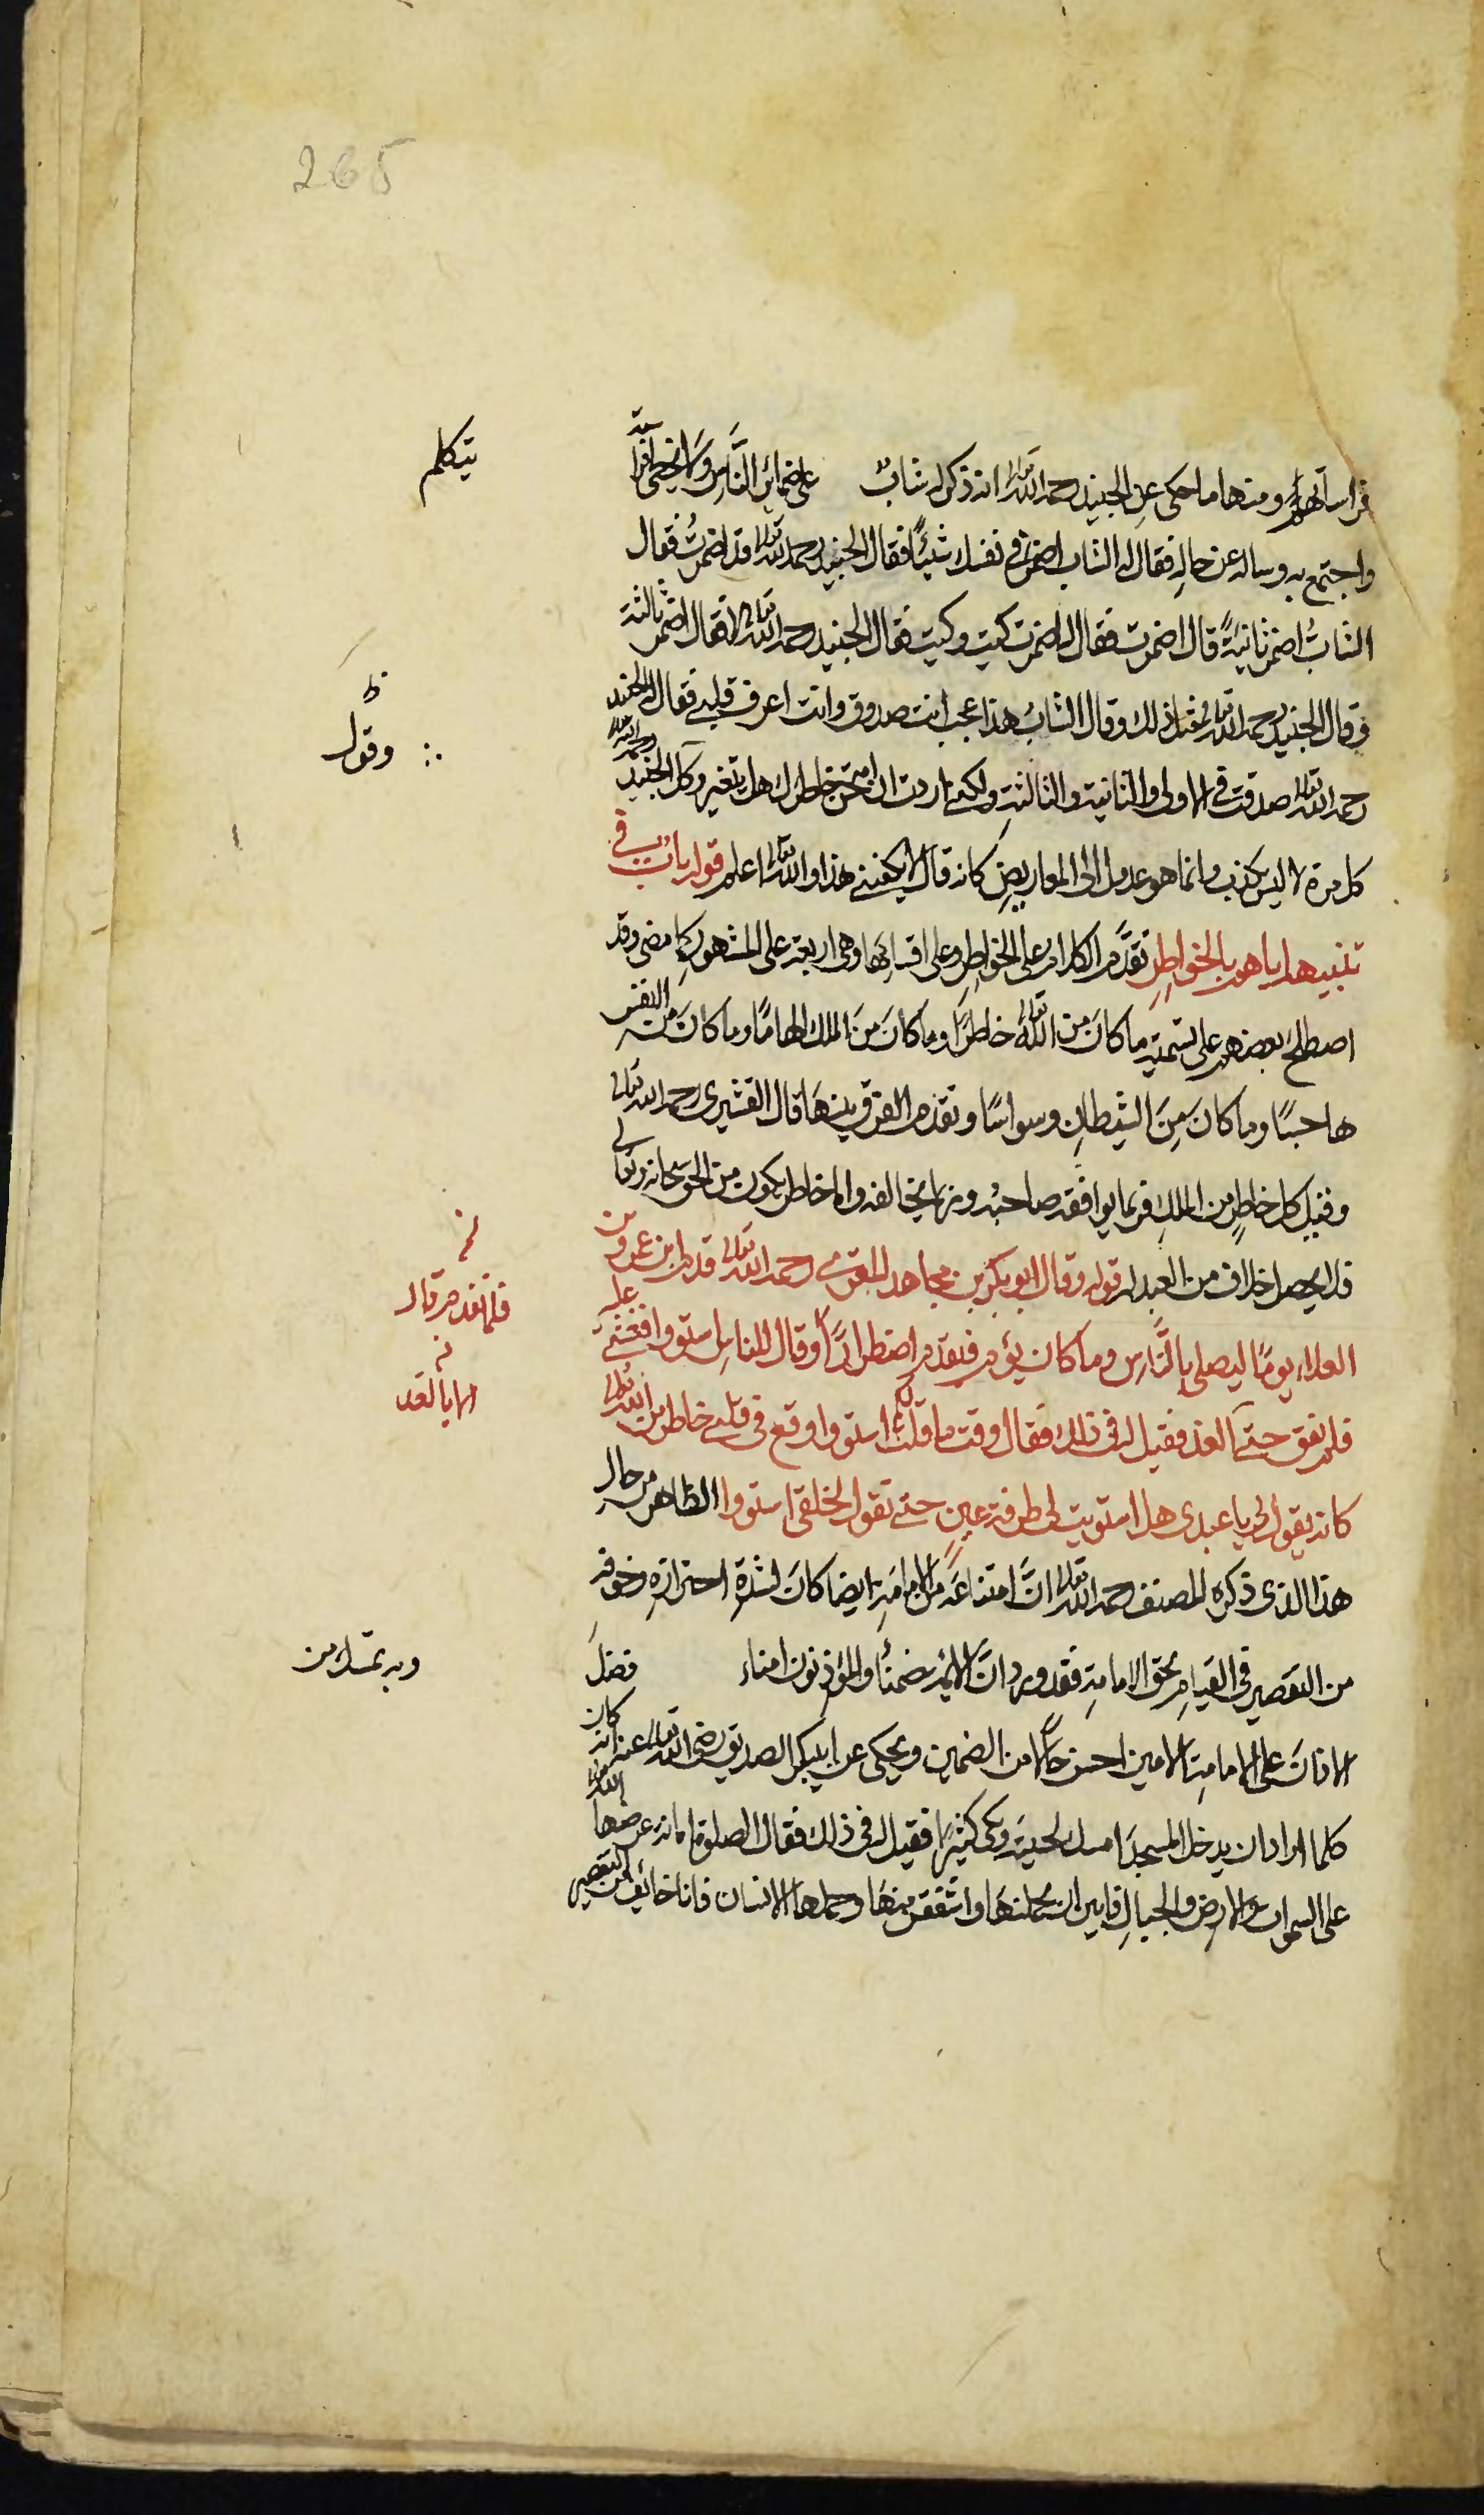 265
فراساتهم ومنها ما حكى عن الجنيد رحمه الله تعالى انه ذكر له شاب على ضمائر الناس ولا تخطئ فراسته
يتكلم
واجتمع به وساله عن حاله فقال له الشاب اضمر في نفسك شيئًا فقال الجنيد رحمه الله تعالى قد اضمرتُ فقال
الشابُ اضمر ثانيةً قال اضمرت فقال له اضمرت كيت وكيت فقال الجنيد رحمه الله تعالى لا فقال اضمر ثالثة
فقال الجنيد رحمه الله تعالى مثل ذلك وقال الشابُ هذا عجب انت صدوق وانت اعرف قلبي فقال له الجنيد
رحمه الله تعالى صدقت في الاولى والثانية والثالثة ولكني اردت ان امتحن خاطرك هل يتغير وكل الجنيد رحمه الله تعالى
ظ
وقول
كل مرة لا ليس بكذب وانما هو عدول الى المعاريض كانه قال لا يكفيني هذا والله تعالى اعلم قوله باب في
تنبيههم اياهم بالخواطر تقدّم الكلام على الخواطر وعلى اقسامها وهى اربعة على المشهور كما مضى وقد
اصطلح بعضهم على تسمية ما كان من الله تعالى خاطرًا وما كان من الملك الهامًا وما كان من النفس
هاجسًا وما كان من الشيطان وسواسًا وتقدم الفرق بينها قال القشيرى رحمه الله تعالى
وقيل كل خاطرٍ من الملك فربما يوافقه صاحبه وربما يخالفه واما خاطر يكون من الحق سبحانه وتعالى
فلا يحصل خلاف من العبد له قوله وقال ابو بكر بن مجاهد المقرى رحمه الله تعالى قدم ابن عمرو بن
العلاء يومًا ليصلى بالناس وما كان يؤم فتقدم اضطرارًا وقال للناس استووا فغشى عليه
فلما تقدم قال
فلم يفق حتى الغد فقيل له في ذلك فقال وقت ما قلت لكم استووا وقع في قلبي خاطر من الله تعالى
الا بالغد
كانه يقول لى يا عبدى هل استويت لى طرفة عين حتى تقول لخلقى استووا الظاهر من حال
هذا الذى ذكره المصنف رحمه الله تعالى انّ امتناعه من الامامة ايضا كان لشدة احترازه وخوفه
من التقصير في القيام بحق الامامة فقد ورد ان الائمة ضمناء والمؤذنون امناء فضل
وبه تمسك من
الاذان على الامامة الامين احسن حالًا من الضمين ويحكى عن ابى بكر الصديق رضى الله تعالى عنه انه كان
كلما اراد ان يدخل المسجد امسك لحيته وبكى كثيرًا فقيل له في ذلك فقال الصلوة امانة عرضها الله تعالى
على السموات والارض والجبال فابين ان يحملنها واشفقن منها وحملها الانسان فانا خائف من التقصير